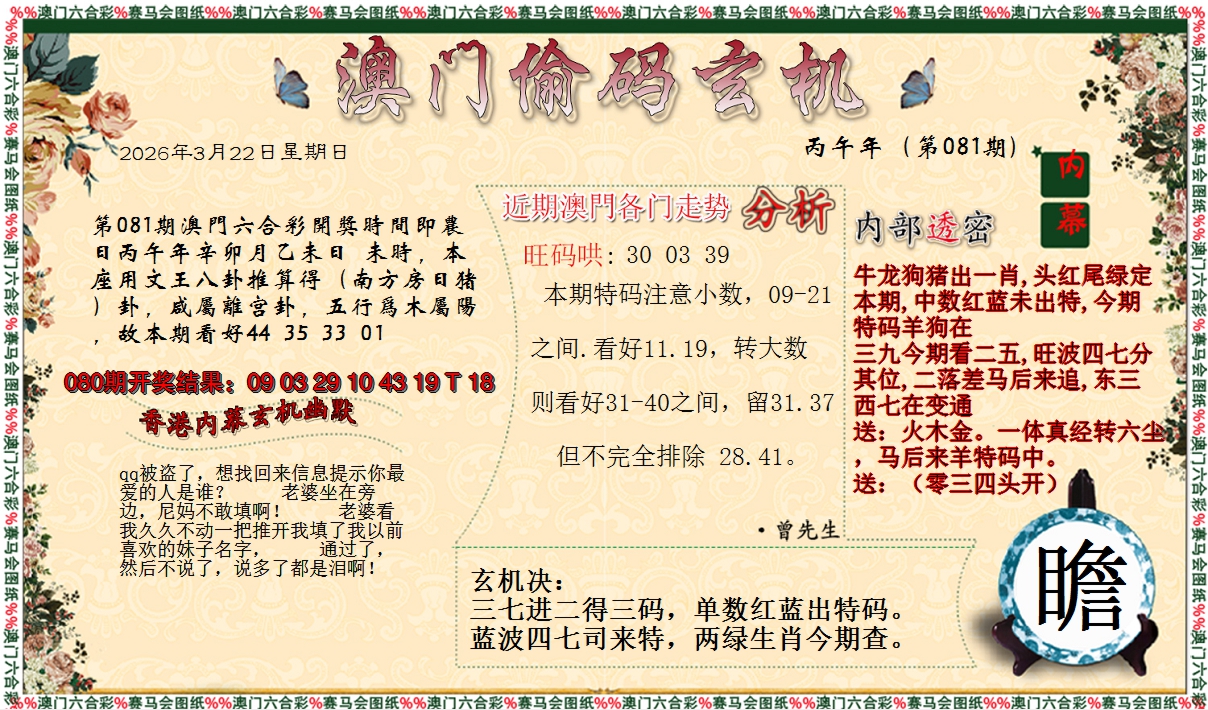 %%澳门六合彩%赛马会图纸%%澳门六合彩%赛马会图纸%%澳门六合彩%赛马会图纸%%澳门六合彩%赛马会图纸%%澳门六合彩%赛马会图纸%%澳门六合彩%赛马会图纸%%
澳门偷码玄机
2026年3月22日星期日
丙午年（第081期）
内幕
第081期澳門六合彩開獎時間即農
日丙午年辛卯月乙未日 未時，本
座用文王八卦推算得（南方房日猪
）卦，咸屬離宫卦，五行爲木屬陽
，故本期看好44 35 33 01
080期开奖结果：09 03 29 10 43 19 T 18
香港内幕玄机幽默
qq被盗了，想找回来信息提示你最
爱的人是谁？ 老婆坐在旁
边，尼妈不敢填啊！ 老婆看
我久久不动一把推开我填了我以前
喜欢的妹子名字， 通过了，
然后不说了，说多了都是泪啊！
近期澳門各门走势 分析
旺码哄: 30 03 39
本期特码注意小数，09-21
之间.看好11.19，转大数
则看好31-40之间，留31.37
但不完全排除 28.41。
·曾先生
内部透密
牛龙狗猪出一肖,头红尾绿定
本期,中数红蓝未出特,今期
特码羊狗在
三九今期看二五,旺波四七分
其位,二落差马后来追,东三
西七在变通
送：火木金。一体真经转六尘
，马后来羊特码中。
送：（零三四头开）
玄机决：
三七进二得三码，单数红蓝出特码。
蓝波四七司来特，两绿生肖今期查。
瞻
%%澳门六合彩%赛马会图纸%%澳门六合彩%赛马会图纸%%澳门六合彩%赛马会图纸%%澳门六合彩%赛马会图纸%%澳门六合彩%赛马会图纸%%澳门六合彩%赛马会图纸%%